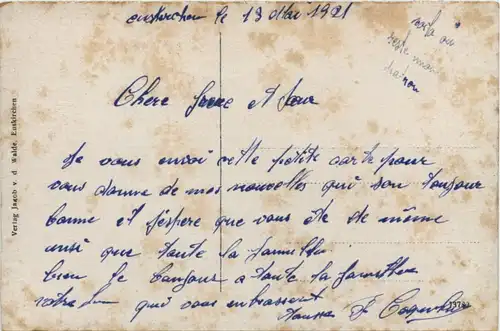 euskirchen le 13 Mai 1921
voila ou
reste mon
patron
Chere frere et sour
Je vous envoi cette petite carte pour
vous donne de mes nouvelles qui son toujour
bonne et j'espere que vous ête de même
insi que toute la famille
bien le bonjour a toute la famille
votre qui vous embrassent
Verlag Jacob v. d. Walde, Euskirchen